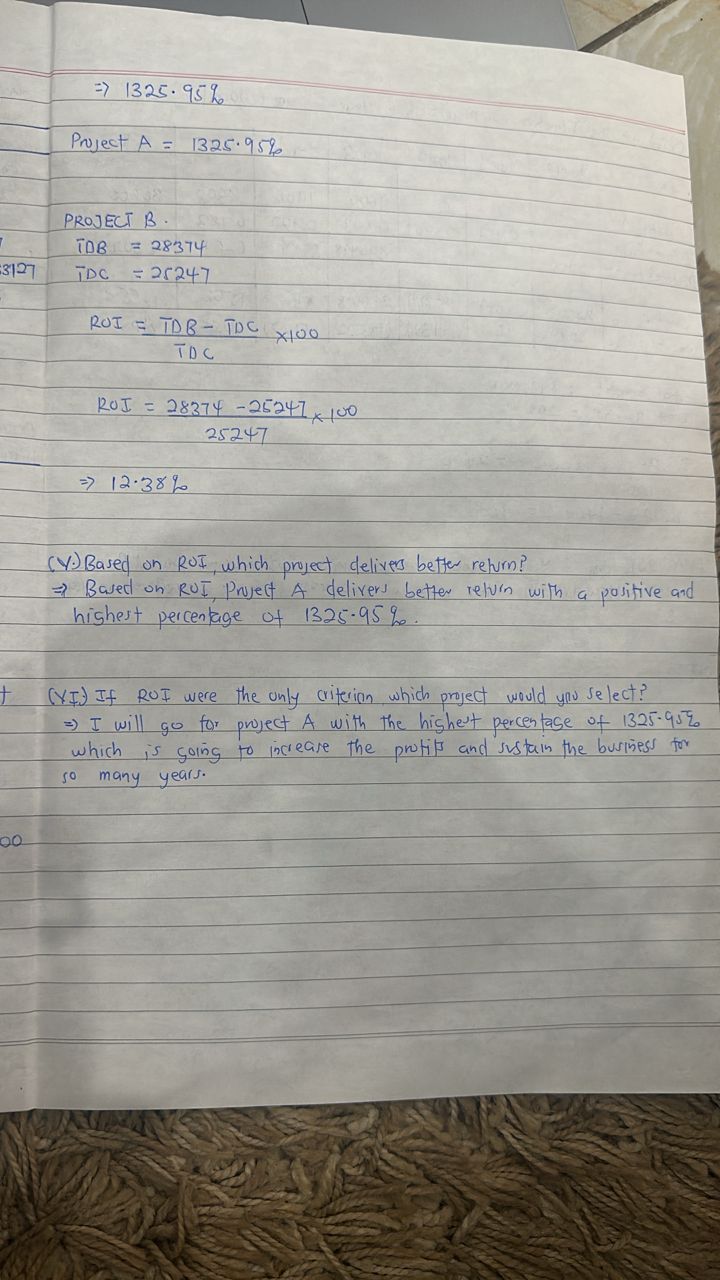 => 1325.95%
Project A = 1325.95%
PROJECT B.
TDB = 28374
33127
TDC = 25247
ROI = TDB - TDC x100
TDC
ROI = 28374 - 25247 x 100
25247
=> 12.38%
(V.) Based on ROI, which project delivers better return?
=> Based on ROI, Project A delivers better return with a positive and
highest percentage of 1325.95%.
(VI.) If ROI were the only criterion, which project would you select?
=> I will go for project A with the highest percentage of 1325.95%
which is going to increase the profits and sustain the business for
so many years.
00